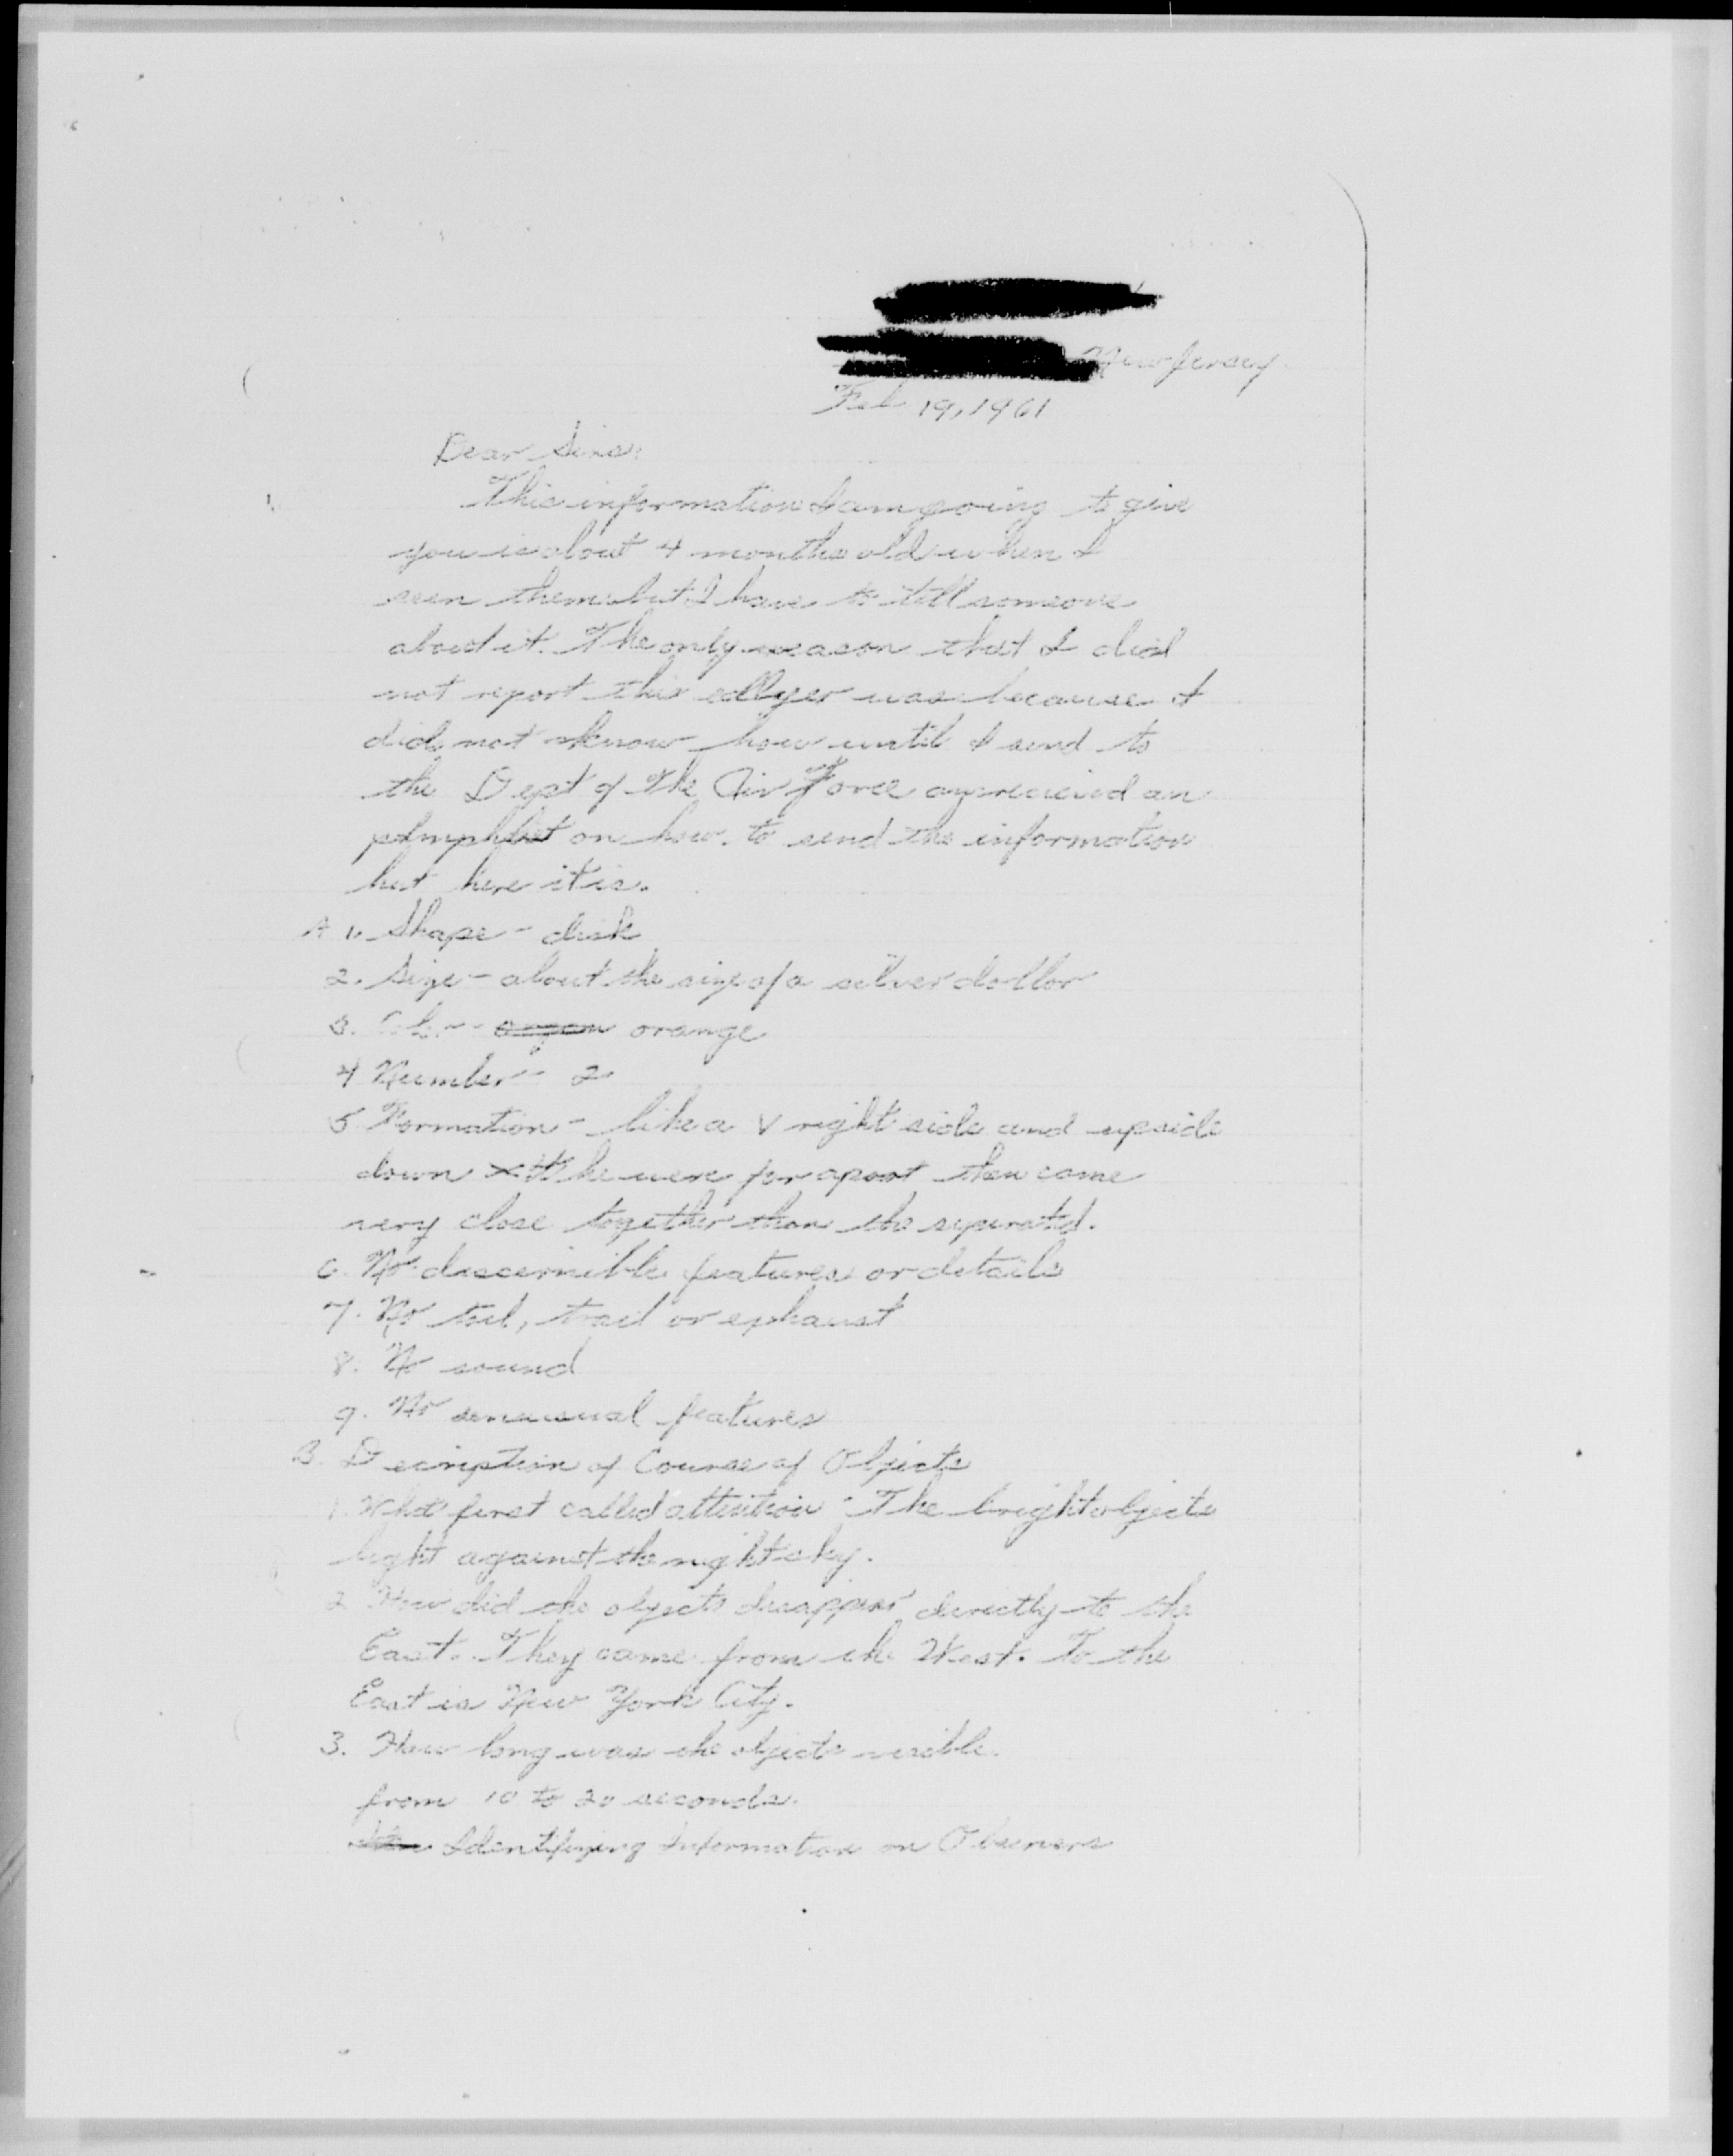 New Jersey
Feb 19, 1961
Dear Sirs:
This information I am going to give
you is about 4 months old when I
seen them but I have to tell someone
about it. The only reason that I did
not report this was because I
did not know how until I send to
the Dept of The Air Force an
on how to send the information
but here it is.
A 1. Shape - disk
2. Size - about the size of a silver dollar
3. Color - orange
4 Number - 2
5 Formation - like a V right side and upside
down were far apart then come
very close together than the seperated.
6. No discernible features or details
7. No tail, trail or exhaust
8. No sound
9. No features
B. Decription of Course of Objects
1. What first called attention - The bright objects
light against the night sky.
2 How did the objects disappear directly to the
East. They came from the West. To the
East is New York City.
3. How long was the objects visible.
from 10 to 20 seconds.
Identifying Information on Observers